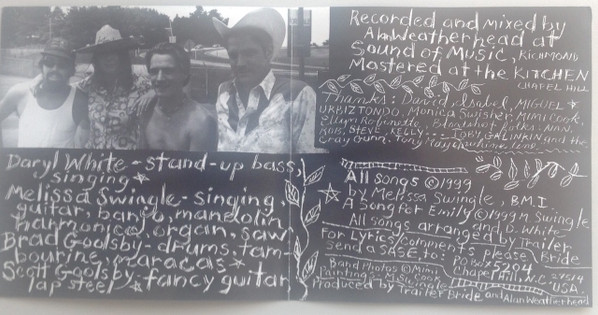 Daryl White - stand-up bass,
singing
Melissa Swingle - singing,
guitar, banjo, mandolin
harmonica, organ, saw
Brad Goolsby - drums, tam-
bourine, maracas
Scott Goolsby - fancy guitar,
lap steel
Recorded and mixed by
Alan Weatherhead at
Sound of Music, RICHMOND
Mastered at the KITCHEN
CHAPEL HILL
Thanks: David, Isabel, MIGUEL
URBIZTONDO, Monica Swisher, MIMI Cook,
Bloodshot folks: NAN,
ROB, STEVE, KELLY. TOBY, and the
All songs ©1999
by Melissa Swingle, B.M.I.
A Song for Emily ©1999 M. Swingle
and D. White
All songs arranged by Trailer
Bride
For Lyrics/comments please
send a SASE to: PO Box 5204
Chapel Hill, N.C. 27514
USA.
Band Photos © Mimi
Painting - M. Swingle
Produced by Trailer Bride and Alan Weatherhead